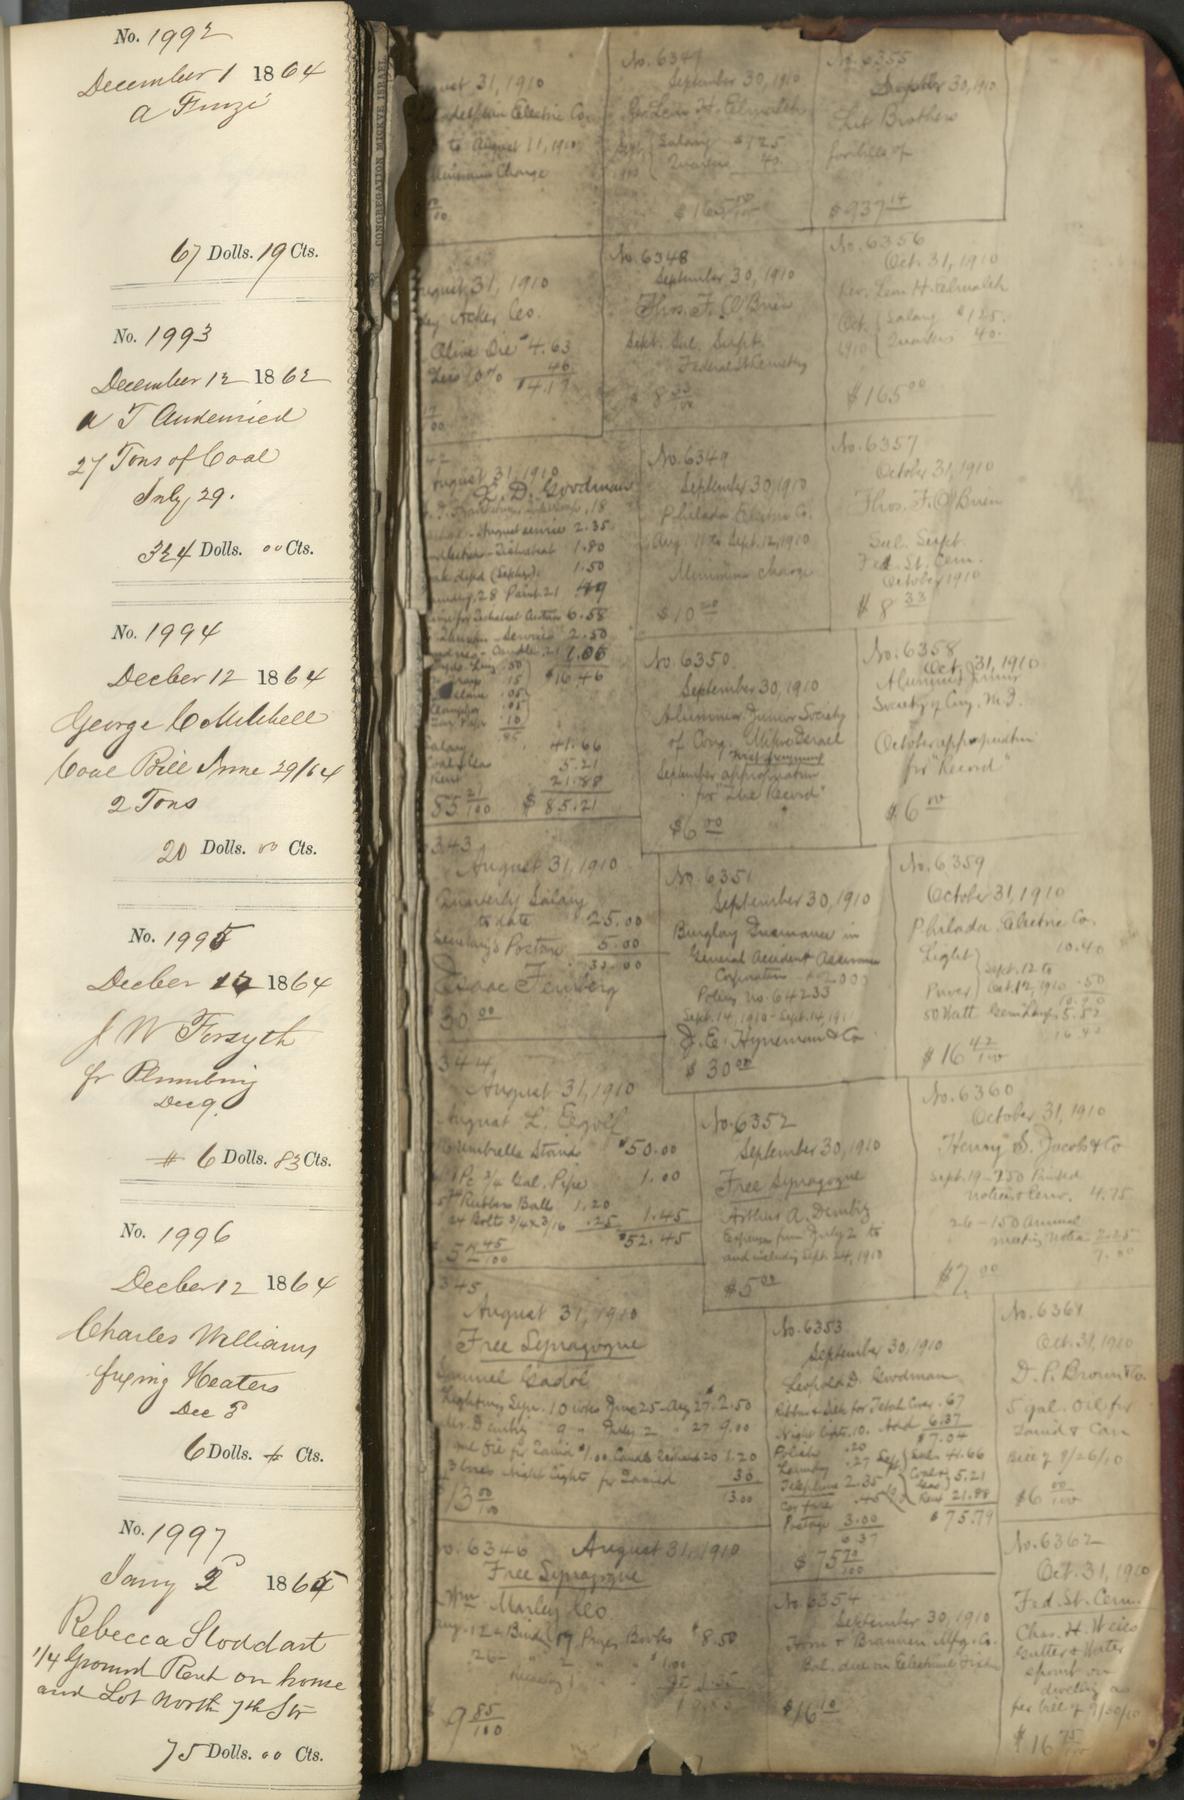 No. 1992
December 1 1864
A Finzi
67 Dolls. 19 Cts.
No. 1993
December 12 1862
A T Audenried
27 Tons of Coal
July 29.
324 Dolls. 00 Cts.
No. 1994
Decber 12 1864
George C Mitchell
Coal Bill June 29/64
2 Tons
20 Dolls. 00 Cts.
No. 1995
Decber 12 1864
J W Forsyth
for Plumbing
Dec 9.
# 6 Dolls. 83 Cts.
No. 1996
Decber 12 1864
Charles Williams
fixing Heaters
Dec 8
6 Dolls. Cts.
No. 1997
Jany 2 1865
Rebecca Stoddart
1/4 Ground Rent on house
and Lot North 7th Str
75 Dolls. 00 Cts.
CONGREGATION MICKVE ISRAEL
August 31, 1910
Electric Co.
to August 11, 1910
Minimum Charge
August 31, 1910
Acker Co.
Olive Oil $4.63
Less 10% 46
$4.17
August 31, 1910
L. D. Goodman
August service 2.35
1.80
1.50
6.58
2.50
$16.46
Salary 41.66
Coal & Gas 5.21
Rent 21.88
85 21/100 $85.21
343
August 31, 1910
Quarterly Salary
to date 25.00
Secretary's Postage 5.00
30.00
Isaac Feinberg
30 00
344
August 31, 1910
August L.
Umbrella Stand $50.00
1 Pc 3/4 Gal. Pipe 1.00
Rubber Ball 1.20
24 Bolts 3/4 x 3/16 .25 1.45
$52.45
345
August 31, 1910
Free Synagogue
Samuel Gadol
Lighting Sept. 10 wks June 25-Aug 27 2.50
Mr. Dembitz 9 " July 2 " 27 9.00
3 boxes Night Lights for 30
13.00
$13 00/100
No. 6346 August 31, 1910
Free Synagogue
Wm Marley & Co
Aug. 12 Bindg 17 Prayer Books $8.50
$9 85/100
No. 6347
September 30, 1910
Rev. Leon H. Elmaleh
Sept. 1910 Salary $125
Quarters 40.
$165 00/100
No. 6348
September 30, 1910
Thos. F. O'Brien
Sept. Sal. Supt.
Federal St Cemetery
$8 33/100
No. 6349
September 30, 1910
Philada Electric Co.
Aug. 11 to Sept. 12, 1910
Minimum charge
$10 00
No. 6350
September 30, 1910
Alumni Junior Society
of Cong. Mikve Israel
September appropriation
for "The Record"
$6 00
No. 6351
September 30, 1910
Burglary Insurance in
General Accident Assurance
Corporation - $2,000
Policy No. 64233
Sept. 14, 1910 - Sept. 14, 1911
J. E. Hyneman & Co
$30 00
No. 6352
September 30, 1910
Free Synagogue
Arthur A. Dembitz
Expenses from July 2 to
and including Sept. 24, 1910
$5 00
No. 6353
September 30, 1910
Leopold D. Goodman
Ribbon & Silk for Tebah Cover .67
Night Lights .10. Add 6.37
$7.04
Polish .20
Laundry .27 Sept. Sal. 41.66
Telephone 2.35 Coal & Gas 5.21
Car fare .45 Rent 21.88
Postage 3.00 $75.79
6.37
$75 79/100
No. 6354
September 30, 1910
Horn & Brannen Mfg. Co.
Bal. due on Electrical Fixtures
$16 10
No. 6355
September 30, 1910
Lit Brothers
for bills of
$937 14
No. 6356
Oct. 31, 1910
Rev. Leon H. Elmaleh
Oct. 1910 Salary $125.
Quarters 40.
$165 00
No. 6357
October 31, 1910
Thos. F. O'Brien
Sal. Supt.
Fed. St. Cem.
October 1910
$8 33
No. 6358
Oct. 31, 1910
Alumni Junior
Society of Cong. M. I.
October appropriation
for "Record"
$6 00
No. 6359
October 31, 1910
Philada. Electric Co.
Light 10.40
Sept. 12 to
Power Oct. 12, 1910 .50
10.90
50 Watt Gem Lamps 5.52
16.42
$16 42/100
No. 6360
October 31, 1910
Henry S. Jacobs & Co
Sept. 19-750 Printed
Notices & Env. 4.75
26-150 Annual
meeting Notices 2.25
7.00
$7.00
No. 6361
Oct. 31, 1910
D. P. Brown & Co.
5 gal. Oil for
Tamid & Can
Bill of 9/26/10
$6 00/100
No. 6362
Oct. 31, 1910
Fed. St. Cem.
Chas. H. Weiss
Gutter & Water
spout on
dwelling as
per bill of 9/30/10
$16 75/100